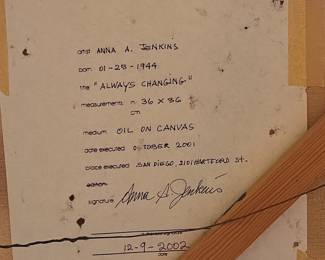 artist ANNA A. JENKINS
born 01-28-1944
title "ALWAYS CHANGING"
measurements in 36 X 36
cm
medium OIL ON CANVAS
date executed OCTOBER 2001
place executed SAN DIEGO, 2101 HARTFORD St.
edition
signature Anna A. Jenkins
12-9-2002
date